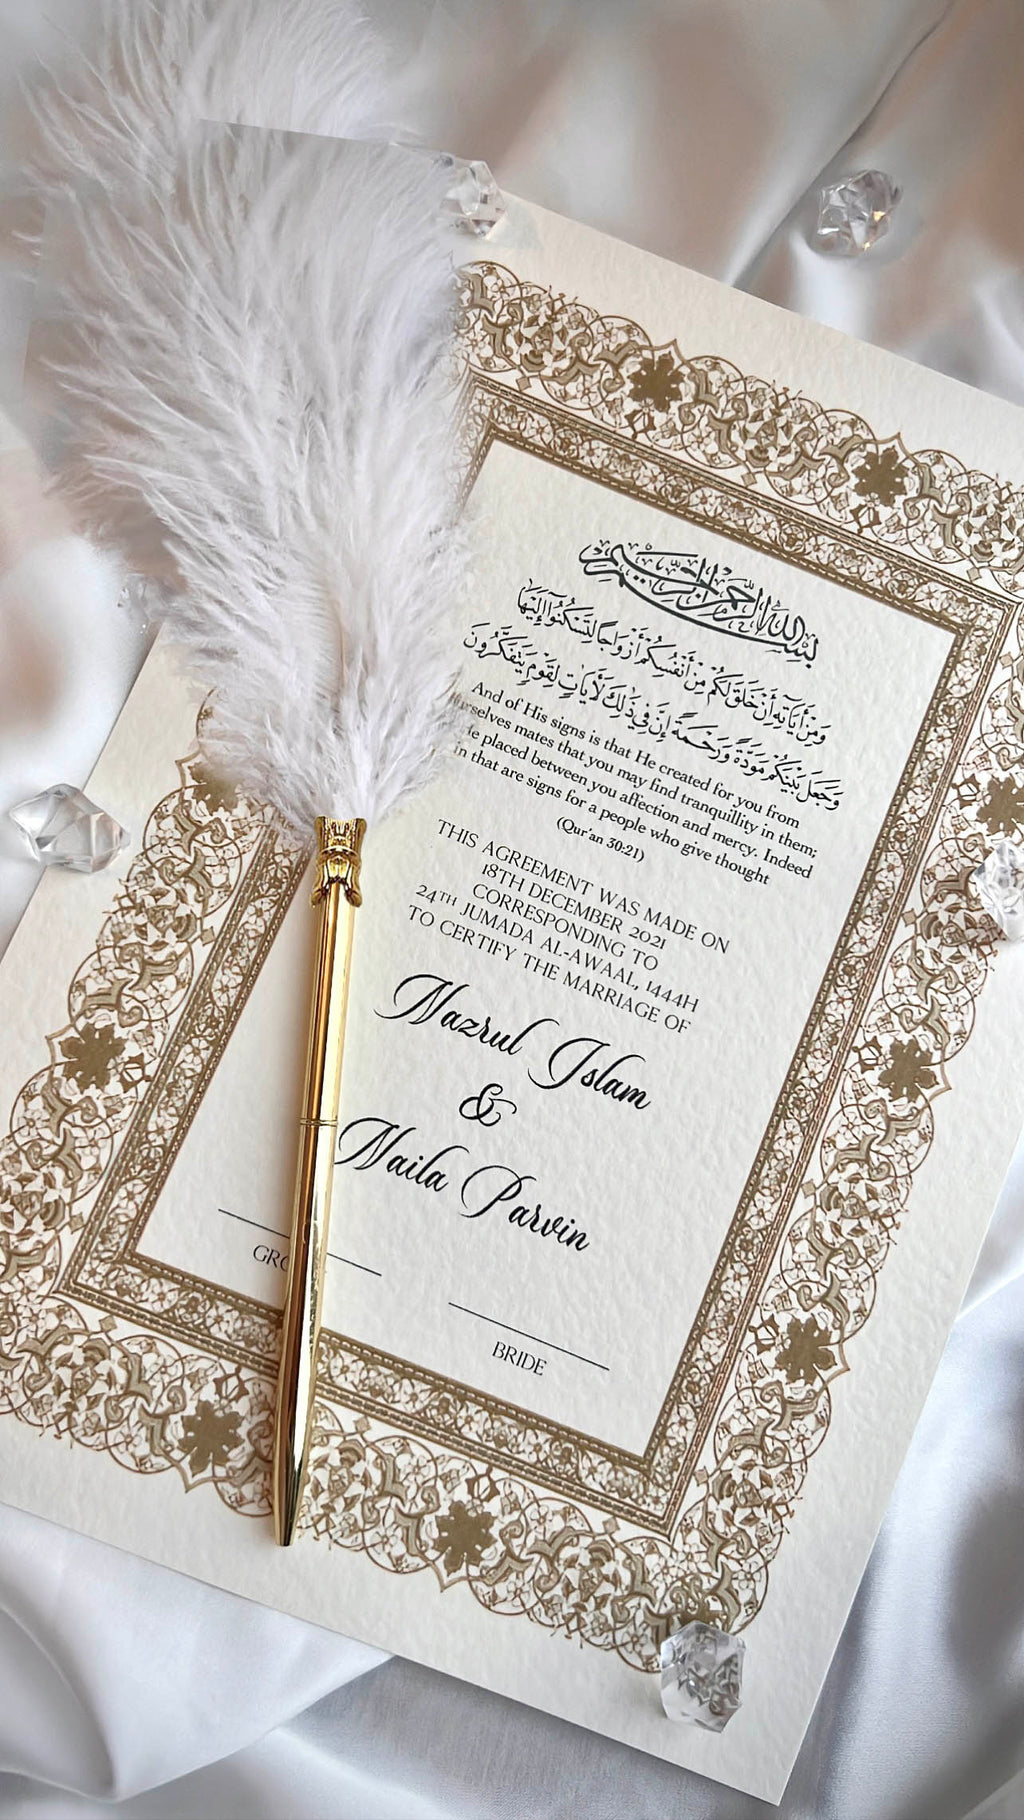 بسم الله الرحمن الرحيم
وَمِنْ آيَاتِهِ أَنْ خَلَقَ لَكُمْ مِنْ أَنْفُسِكُمْ أَزْوَاجًا لِتَسْكُنُوا إِلَيْهَا
وَجَعَلَ بَيْنَكُمْ مَوَدَّةً وَرَحْمَةً إِنَّ فِي ذَٰلِكَ لَآيَاتٍ لِقَوْمٍ يَتَفَكَّرُونَ
And of His signs is that He created for you from
mates that you may find tranquillity in them;
placed between you affection and mercy. Indeed
in that are signs for a people who give thought
(Qur'an 30:21)
THIS AGREEMENT WAS MADE ON
18TH DECEMBER 2021
CORRESPONDING TO
24TH JUMADA AL-AWAAL, 1444H
TO CERTIFY THE MARRIAGE OF
Nazrul Islam
&
Naila Parvin
BRIDE